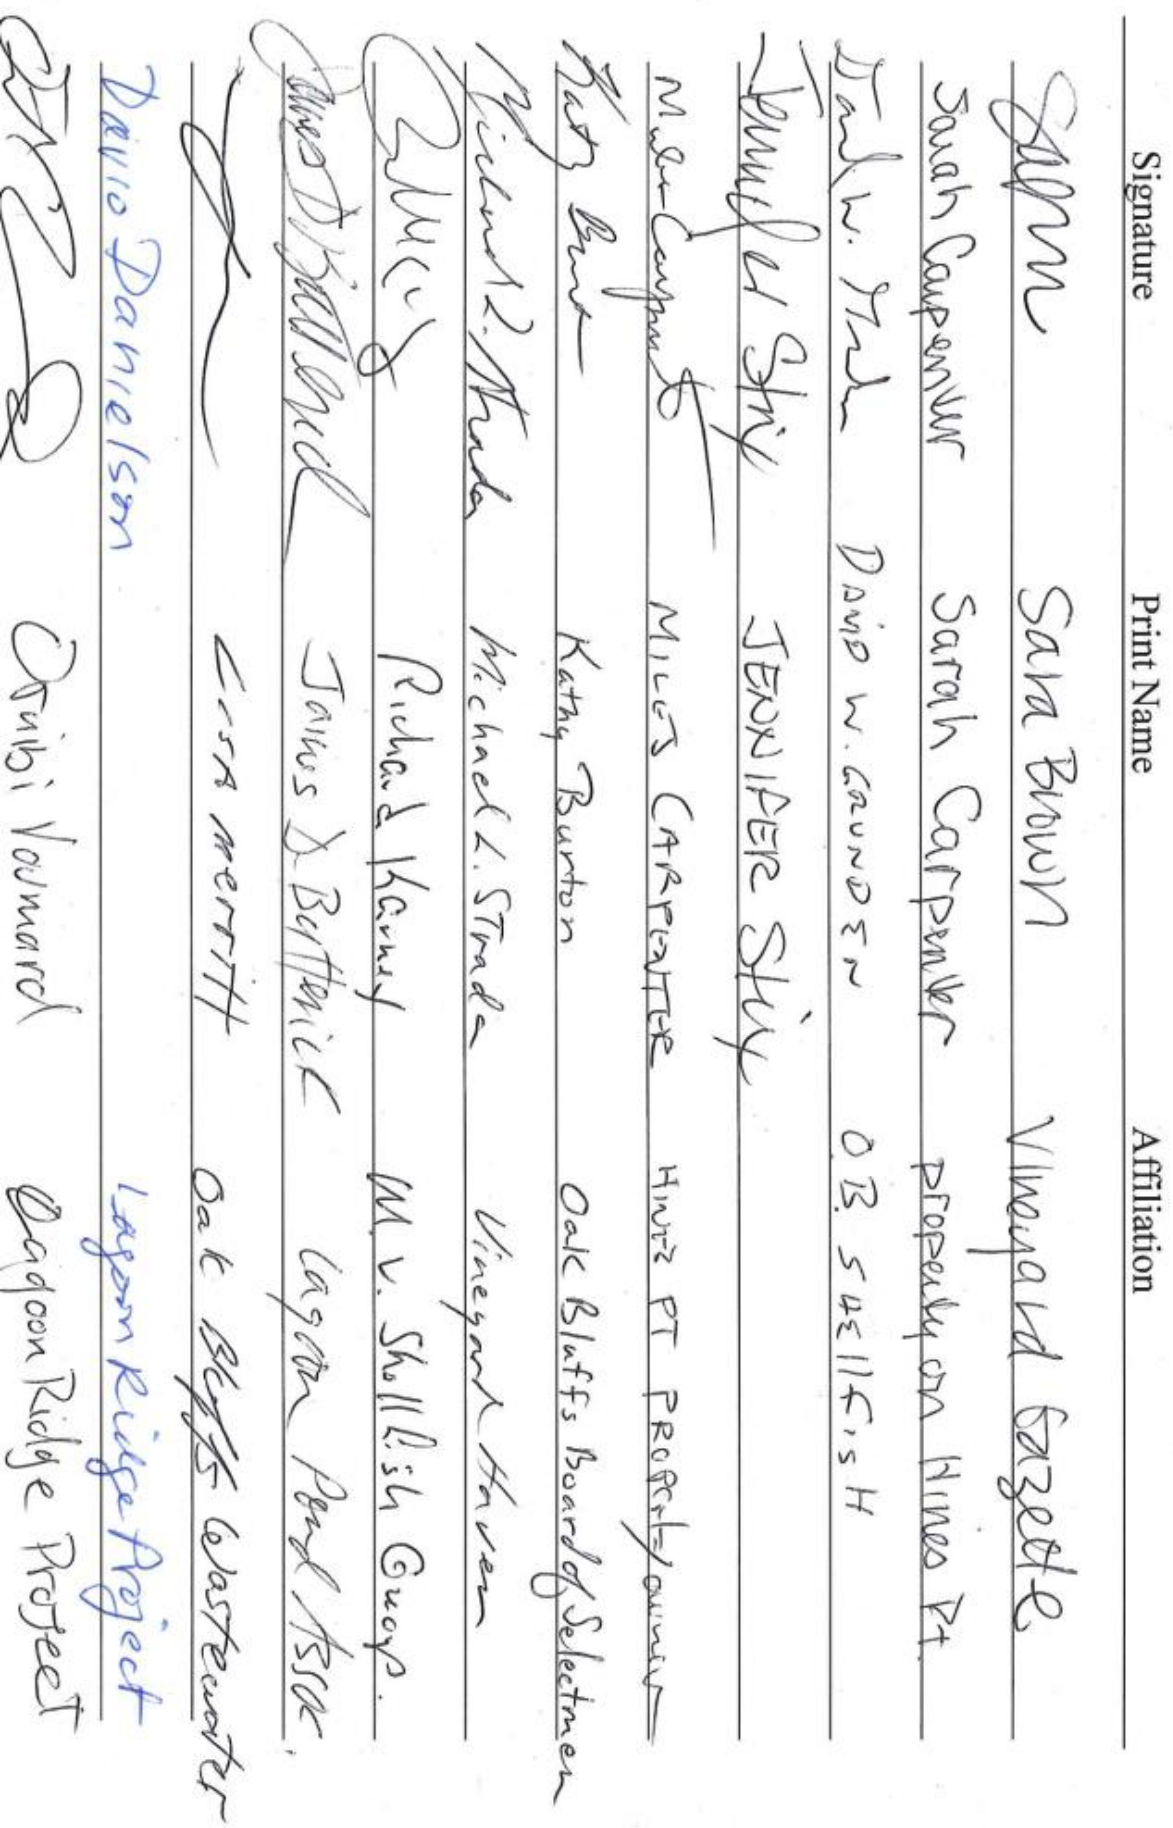 Signature Print Name Affiliation
Sara Brown Vineyard Gazette
Sarah Carpenter Sarah Carpenter property on Hines Pt
David W. Grunden DAVID W. GRUNDEN O.B. SHEllFISH
Jennifer Stix JENNIFER Stix
Miles Carpenter MILES CARPENTER HINES PT PROPERTY owner
Kathy Burton Kathy Burton Oak Bluffs Board of Selectmen
Michael L. Strada Michael L. Strada Vineyard Haven
Richard Karney M.V. Shellfish Group.
James D Butterick James D Butterick Lagoon Pond Assoc.
Lisa Merritt Oak Bluffs Wastewater
David Danielson Lagoon Ridge Project
Voumard Lagoon Ridge Project